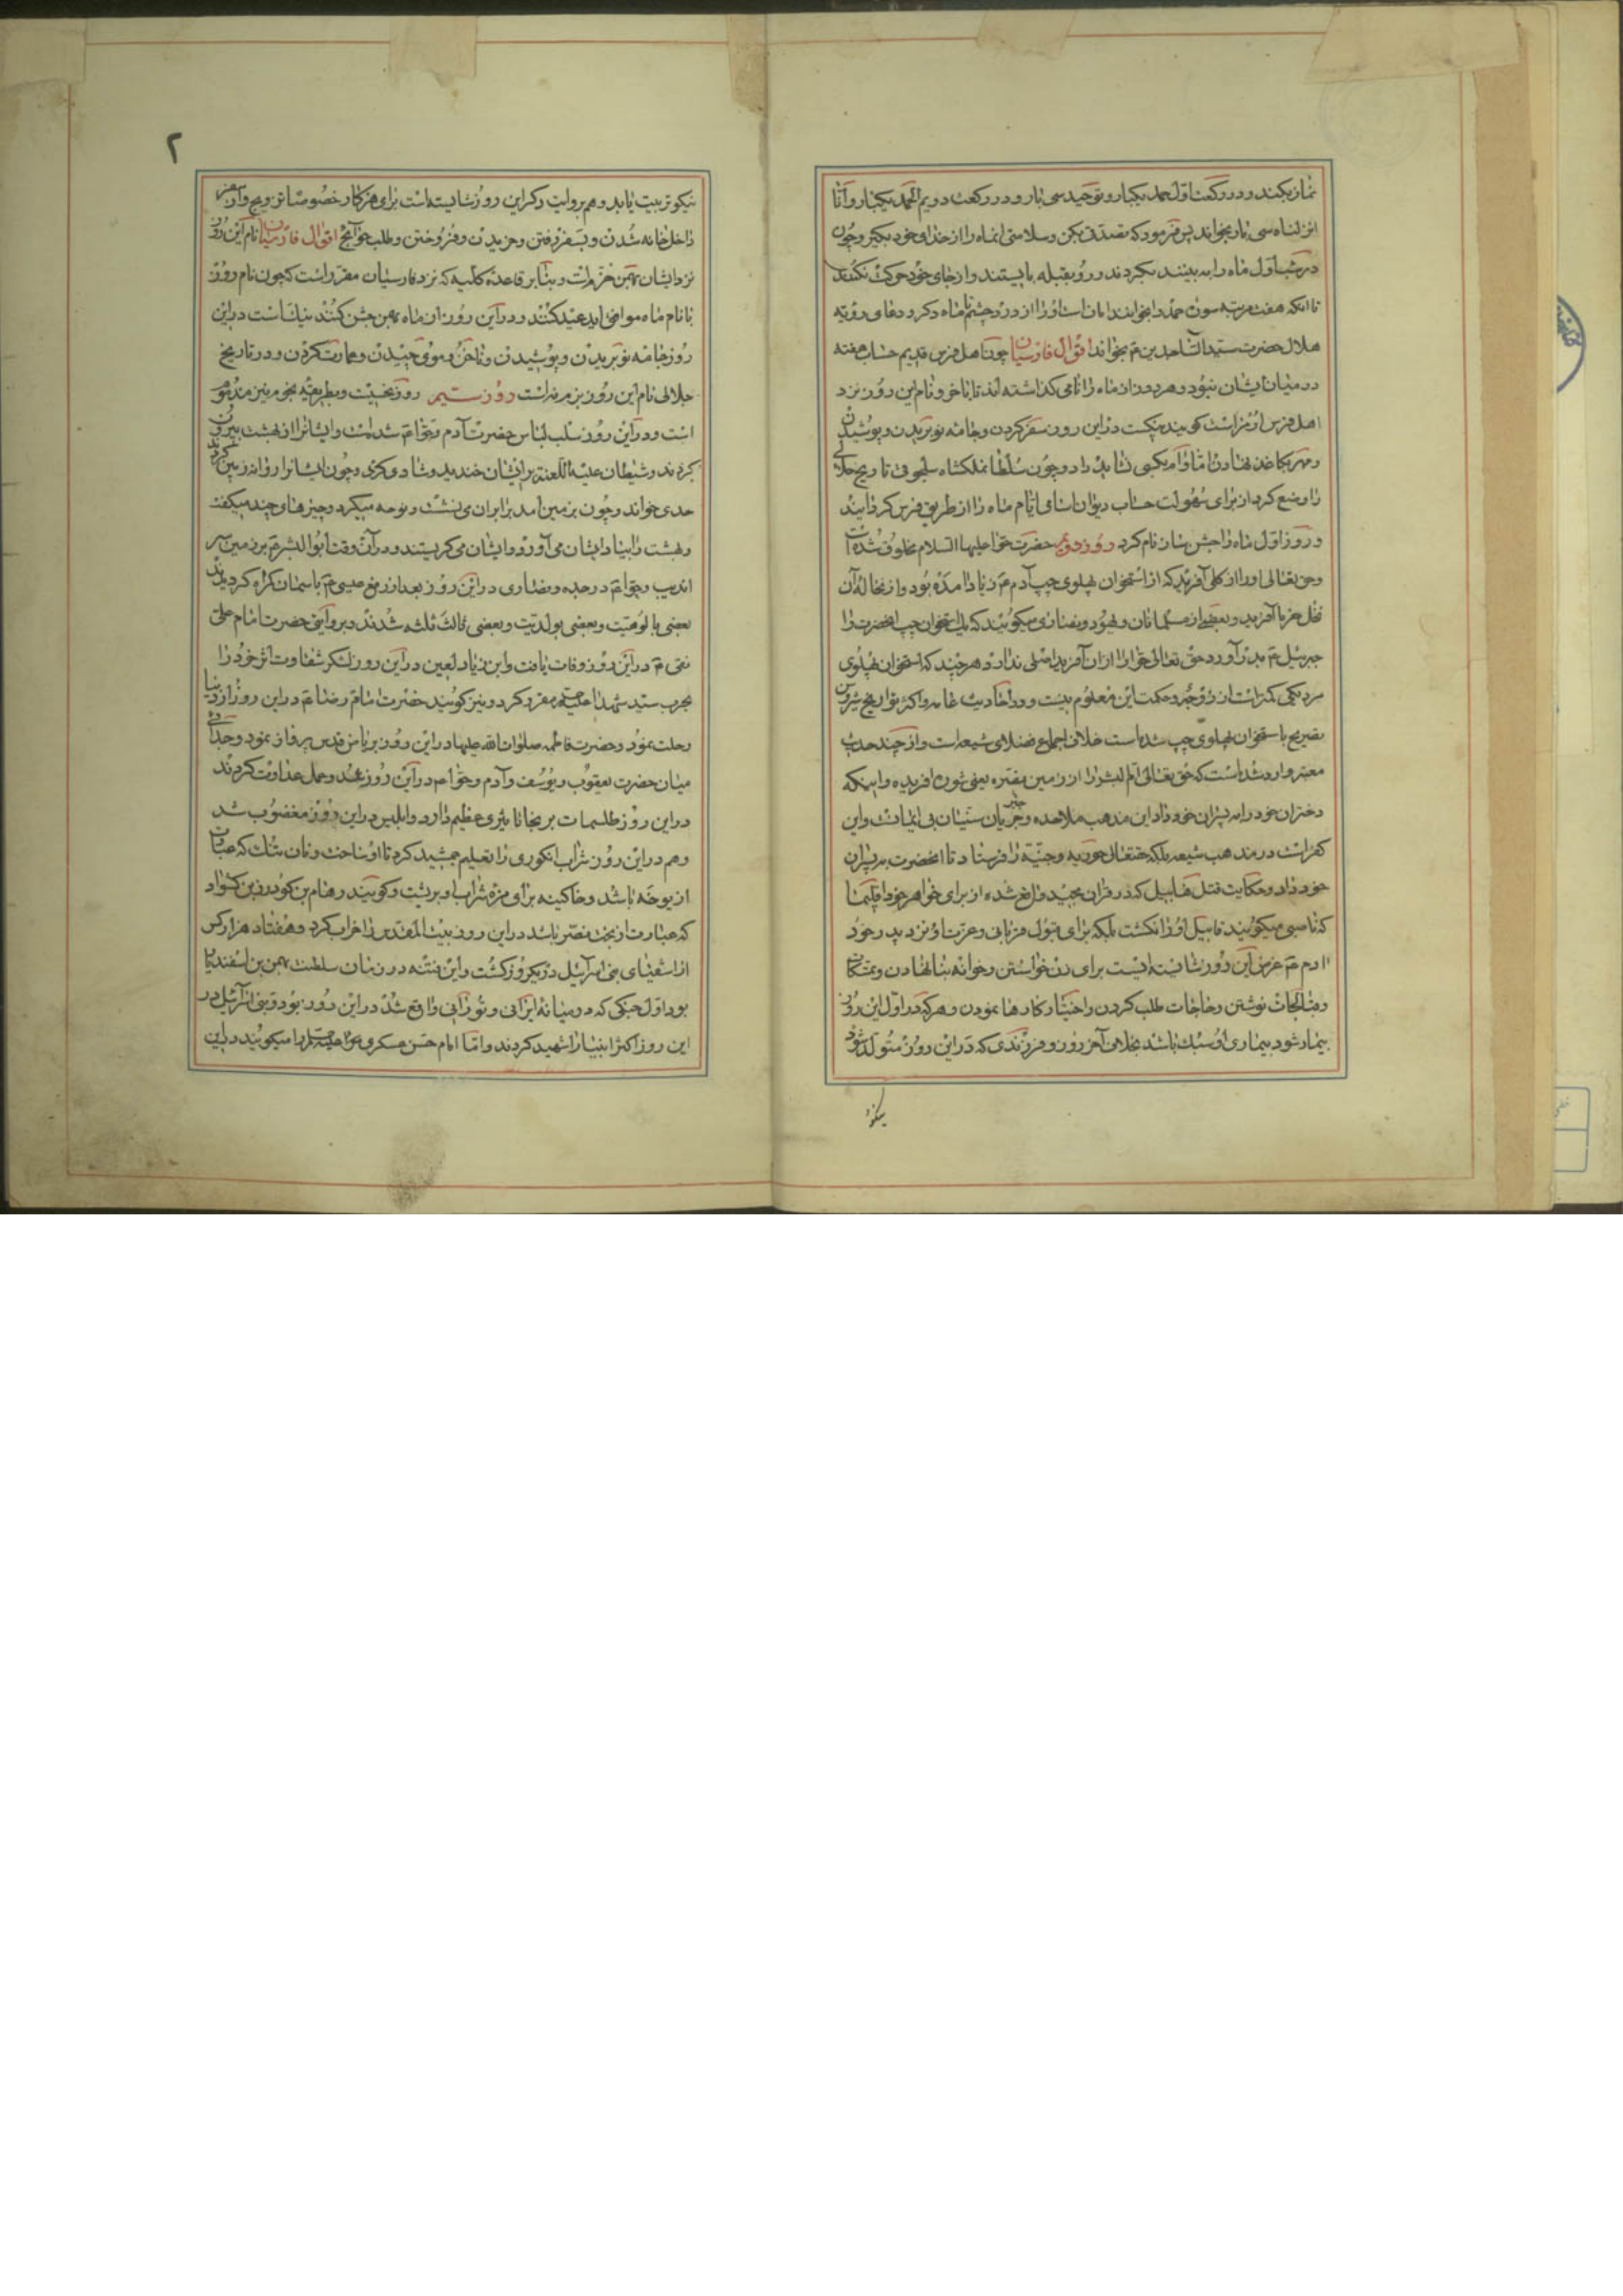 نماز بکند و در رکعت اول حمد یکبار و توحید سی بار و در رکعت دویم الحمد یکبار و انا
انزلناه سی بار بخواند پس فرمود که تصدق بکن و سلامتی انماه را از خدای خود بگیر و چون
در شب اول ماه را به بینند بگردند و رو بقبله بایستند و از جای خود حرکت نکنند
تا آنکه هفت مرتبه سوره حمد را بخوانند امان است او را از درد چشم تا ماه دگر و دعای رؤیه
هلال حضرت سید الساجدین ع بخواند اقوال فارسیان چون اهل فرس قدیم حساب هفته
در میان ایشان نبود و هر روز از ماه را نامی گذاشته اند تا بآخر و نام این روز نزد
اهل فرس اورمزد است گویند نیکست در این روز سفر کردن و جامه نو بریدن و پوشیدن
و مهر بکاغذ نهادن اما وام بکسی نشاید داد و چون سلطان ملکشاه سلجوقی تاریخ جلالی
را وضع کرد از برای سهولت حساب دیوان اسامی ایام ماه را از طریق فرس گردانید
و روز اول ماه را جشن سان نام کرد روز دویم حضرت حوا علیها السلام مخلوق شده است
و حق تعالی او را از گلی آفرید که از استخوان پهلوی چپ آدم ع زیاد آمده بود و از نخاله آن
نخل خرما آفرید و بعضی از مسلمانان و یهود و نصاری میگویند که یک استخوان چپ انحضرت را
جبرئیل ع بدر آورد حق تعالی حوا را از آن آفرید اصلی ندارد هر چند که استخوان پهلوی
مرد یکی کمتر است از زوجه و حکمت این معلوم نیست و در احادیث عامه و اکثر تواریخ
تصریح باستخوان پهلوی چپ شده است خلاف اجماع فضلای شیعه است و از چند حدیث
معتبر وارد شده است که حق تعالی ابو البشر را از زمین یعنی شوره افریده و اینکه
دختران خود را به پسران خود داد این مذهب ملاحده و سنیان بی ایمانست و این
کفر است در مذهب شیعه بلکه حقتعالی حوریه و جنیه را فرستاد تا انحضرت به پسران
خود داد و حکایت قتل هابیل که در قران مجید واقع شده از برای خواهر خود اقلیما
که ناصبی میگویند قابیل او را نکشت بلکه برای قبول قربانی و عزت او نزد پدر خود
ادم ع غرض این روز شایسته ایست برای زن خواستن و خوانه بنا نهادن و
و حاجات طلب کردن و اختیار کارها نمودن و هر که در اول این روز
بیمار شود بیماری او سبک باشد بخلاف آخر روز و فرزندی که در این روز متولد شود
نیکو
۲
نیکو تربیت یابد و هم بروایت دگر این روز شایسته است برای هر کار خصوصا تزویج و از سفر
داخل خانه شدن و بسفر رفتن و خریدن و فروختن و طلب حوائج اقوال فارسیان نام این روز
نزد ایشان بهمن است و بنا بر قاعده کلیه که نزد فارسیان مقرر است که چون نام روز
با نام ماه موافق اید عید کنند و در این روز از ماه بهمن جشن کنند نیک است در این
روز جامه نو بریدن و پوشیدن و ناخن و موی چیدن و عمارت کردن و در تاریخ
جلالی نام این روز بزم است روز سیم روز نحسیست و بطریقه نجوم نیز مذموم
است و در این روز سلب لباس حضرت آدم و حوا ع شده است و ایشانرا از بهشت بیرون
کردند و شیطان علیه اللعنه بر ایشان خندید و شادی کرد و چون ایشانرا روانه زمین کردند
حدی خواند و چون بزمین آمد برابر ان می نشست و نوحه میکرد و چیزهای چند میگفت
و بهشت را بیاد ایشان می آورد و ایشان می گریستند و در آن وقت ابو البشر ع بر زمین سر
اندیب و حوا ع در جده و نصاری در این روز بعد از رفع عیسی ع باسمان گمراه گردیدند
بعضی بالوهیت و بعضی بولدیت و بعضی ثالث ثلثه شدند و بروایتی حضرت امام علی
نقی ع در این روز وفات یافت و ابن زیاد لعین در این روز لشکر شقاوت اثر خود را
بحرب سید شهدا علیه السلم مقرر کرد و نیز گویند حضرت امام رضا ع در این روز از دنیا
رحلت نمود و حضرت فاطمه صلوات الله علیها در این روز بریاض قدس پرواز نمود و جدائی
میان حضرت یعقوب و یوسف و آدم و حوا ع در این روز شد و عمل عداوت کردند
در این روز طلسمات بر نجا تاثیری عظیم دارد و ابلیس در این روز مغضوب شد
و هم در این روز شراب انگوری را تعلیم جمشید کرد تا او ساخت و نان تنک که عبارت
از یوخه باشد و خاکینه برای مزه شراب او برشت و گویند رهام بن گودرز بن کشواد
که عبارت از بخت نصر باشد در این روز بیت المقدس را خراب کرد و هفتاد هزار کس
از اشقیای بنی اسرائیل در یکروز کشت و این فتنه در زمان سلطنت بهمن بن اسفندیار
بود اول جنگی که در میانه ایرانی و تورانی واقع شد در این روز بود و بنی اسرائیل در
این روز اکثر انبیا را شهید کردند و اما امام حسن عسکری علیه السلم را میگویند در این